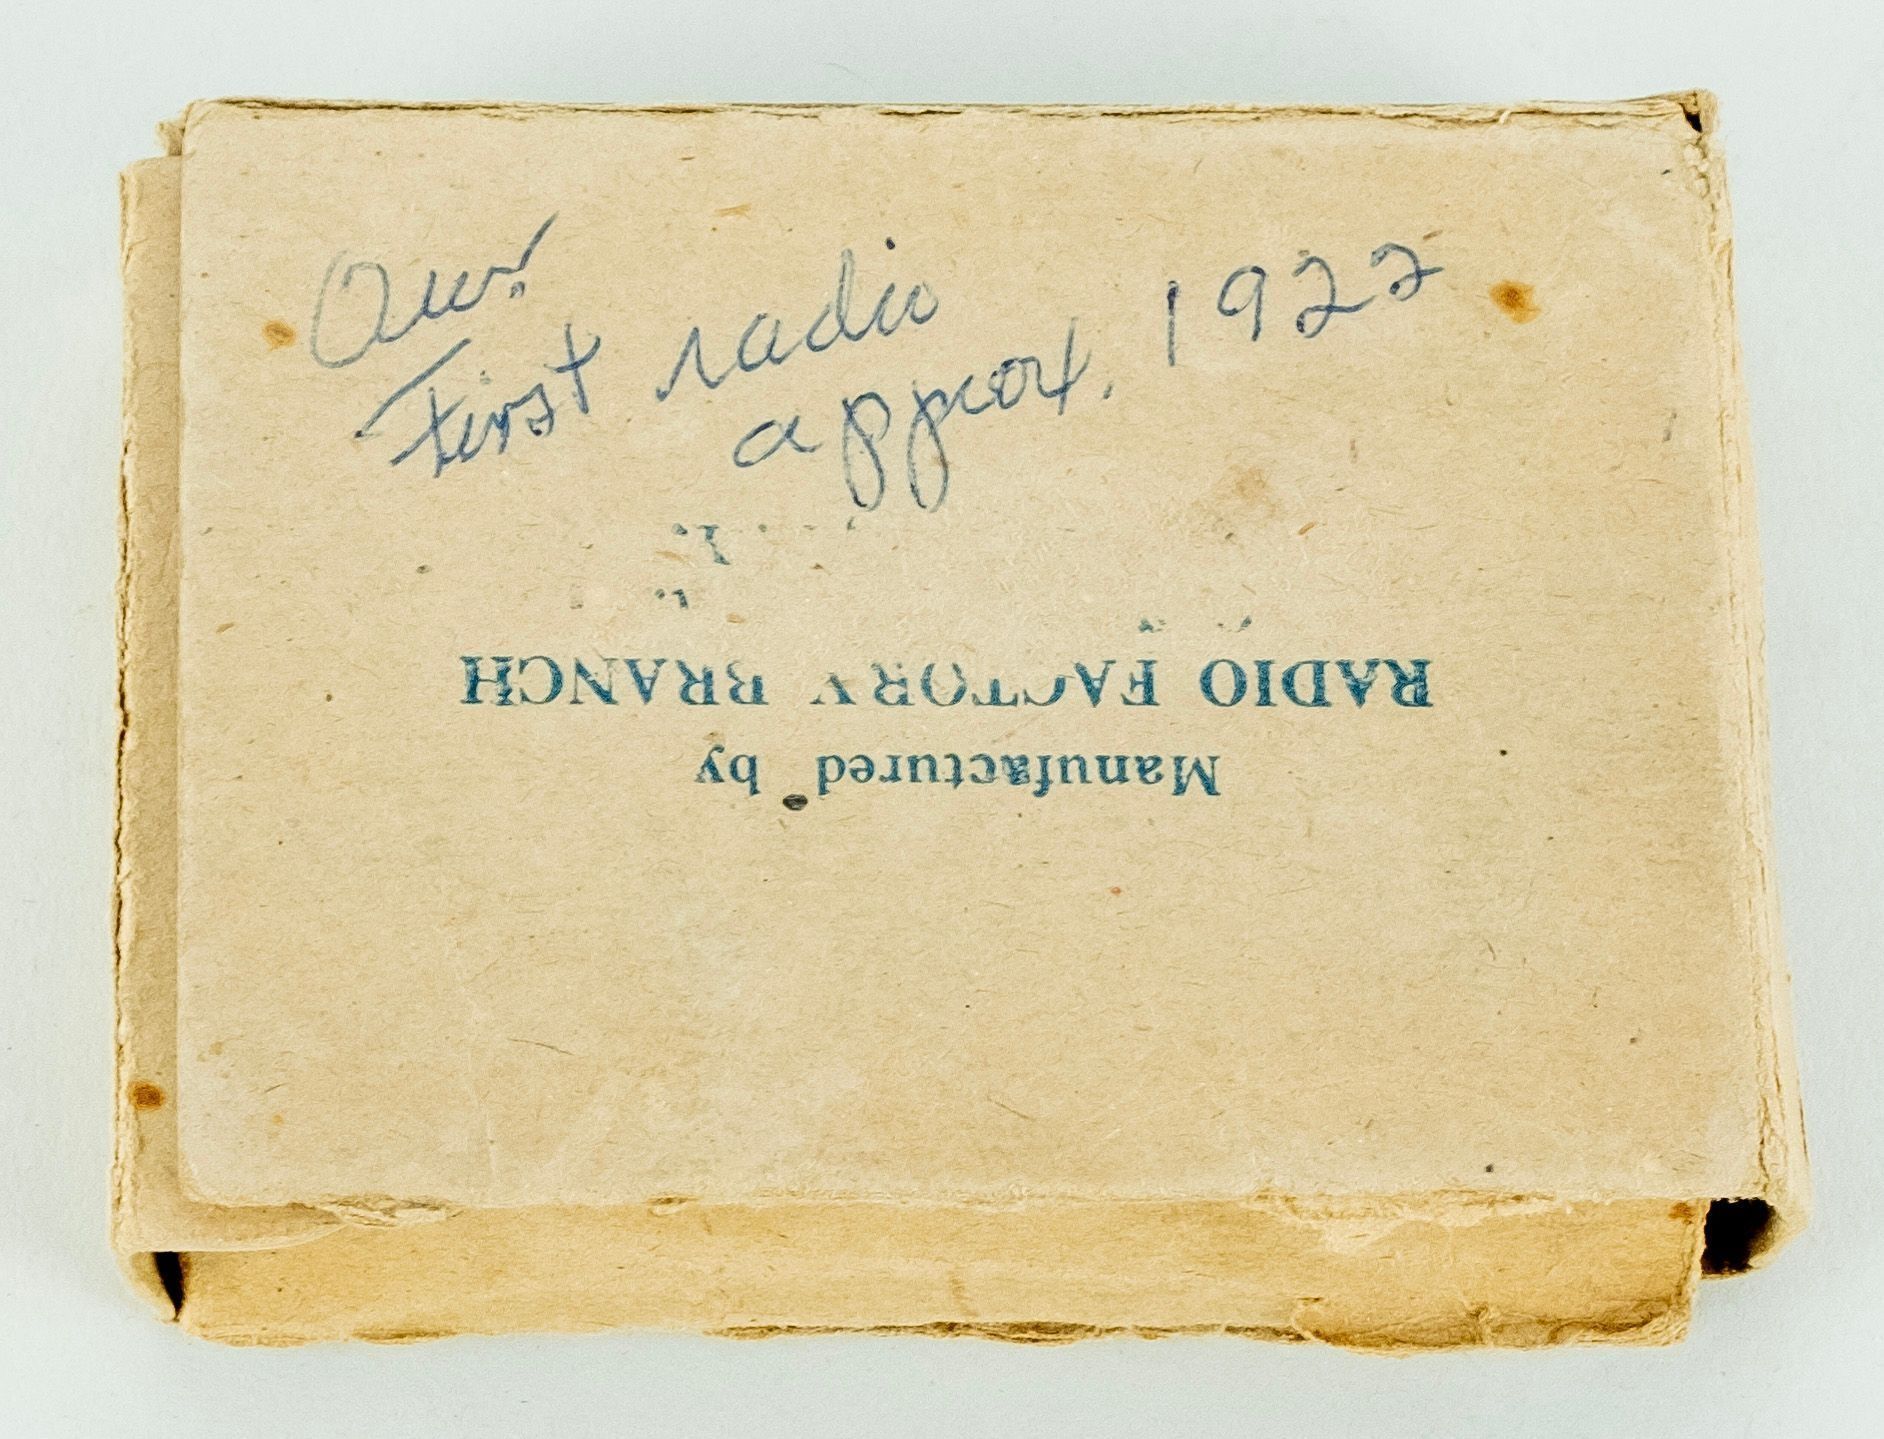 Our
First radio
approx. 1922
Manufactured by
RADIO FACTORY BRANCH